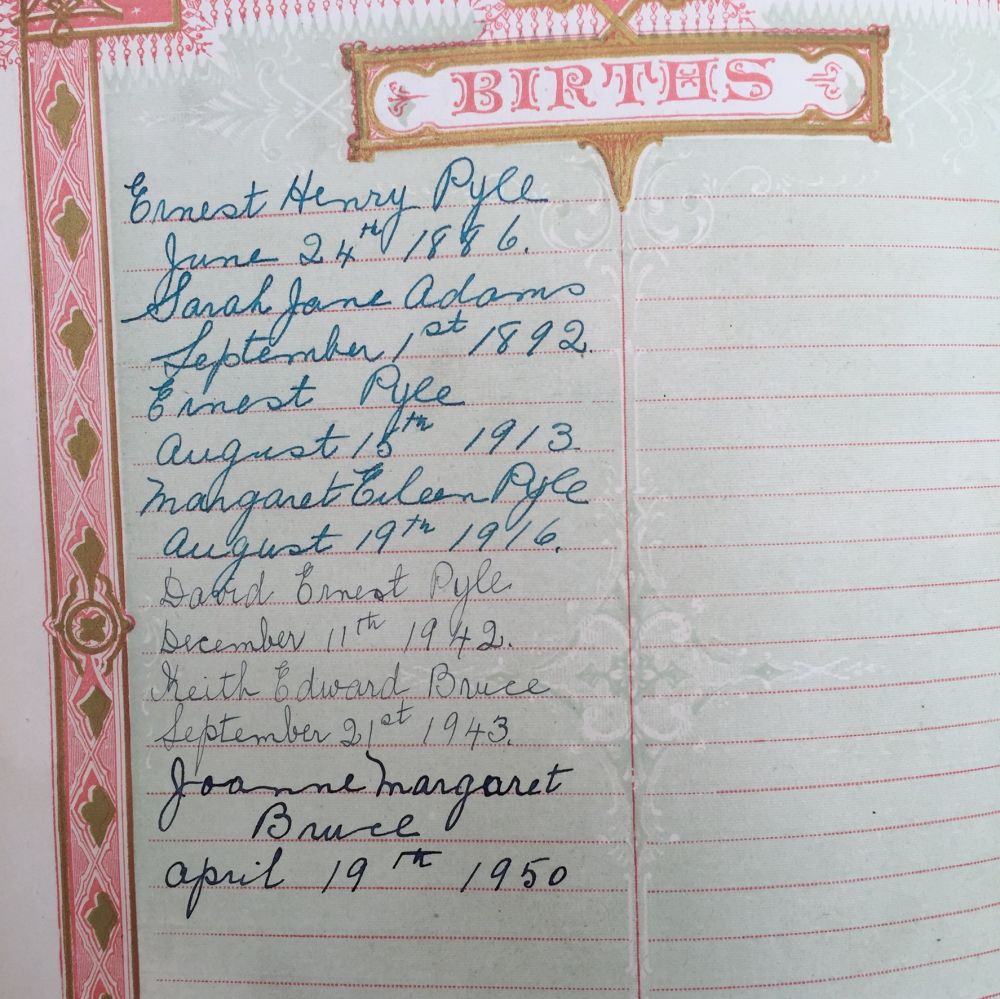 BIRTHS
Ernest Henry Pyle
June 24th 1886.
Sarah Jane Adams
September 1st 1892.
Ernest Pyle
August 15th 1913.
Margaret Eileen Pyle
August 19th 1916.
David Ernest Pyle
December 11th 1942.
Keith Edward Bruce
September 21st 1943.
Joanne Margaret
Bruce
April 19th 1950